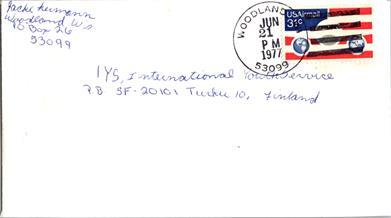 Jackie Neumann
Woodland WI
PO Box 26
53099
WOODLAND
JUN
21
PM
1977
53099
USAirmail
31c
IYS, International Youth Service
P.B. SF-20101 Turku 10, Finland